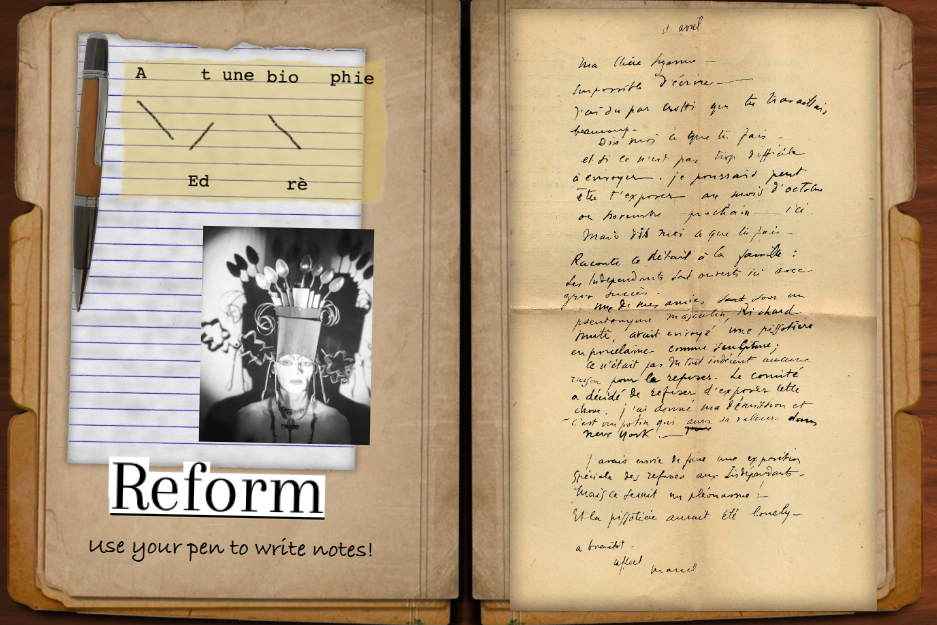 A t une bio phie
Ed rè
Reform
Use your pen to write notes!
11 avril
Ma chère Suzanne —
Impossible d'écrire —
J'ai su par Crotti que tu travaillais
beaucoup.
Dis moi ce que tu fais —
et si ce n'est pas trop difficile
à envoyer. je pourrais peut
être t'exposer au mois d'octobre
ou novembre prochain — ici.
Mais dis moi ce que tu fais —
Raconte ce détail à la famille :
Les Indépendants sont ouverts ici avec
gros succès.
Une de mes amies sous un
pseudonyme masculin, Richard
Mutt, avait envoyé une pissotière
en porcelaine comme sculpture;
ce n'était pas du tout indécent aucune
raison pour la refuser. Le comité
a décidé de refuser d'exposer cette
chose. j'ai donné ma démission et
c'est un potin qui aura sa valeur dans
New York! —
J'avais envie de faire une exposition
spéciale des refusés aux Indépendants —
Mais ce serait un pléonasme! —
Et la pissotière aurait été lonely —
a bientôt.
affect.
Marcel